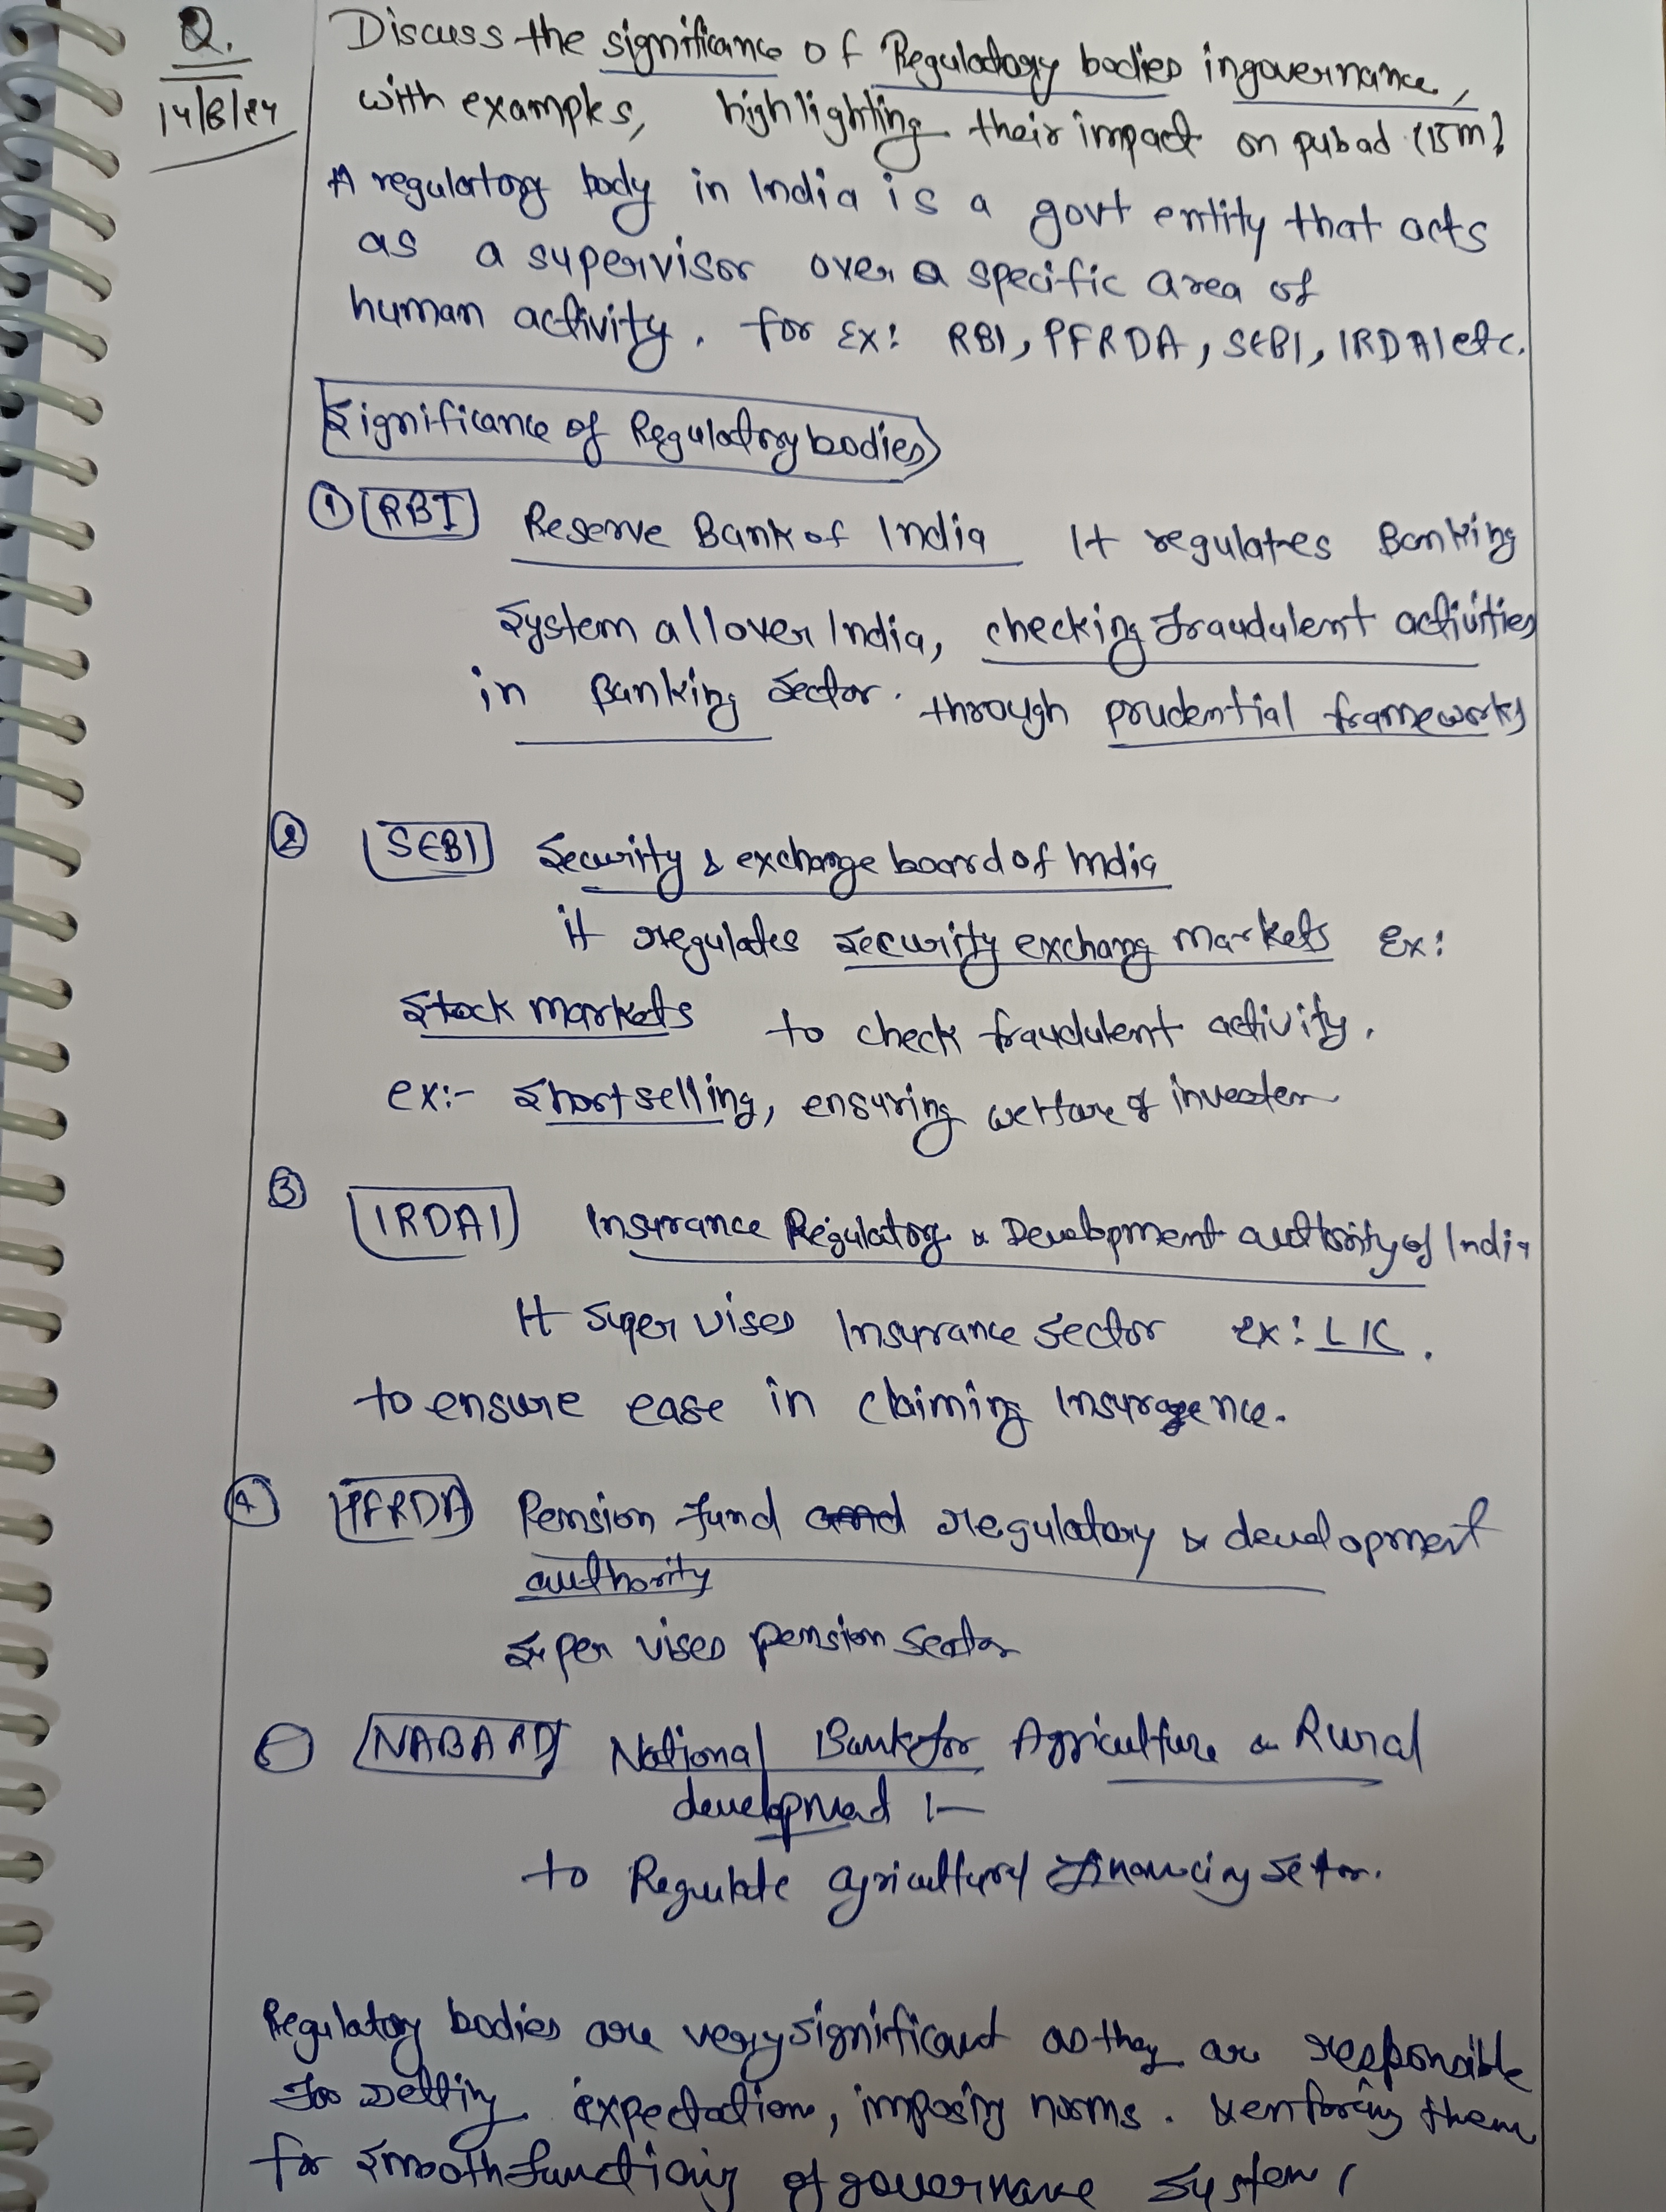 Q.
14/8/24
Discuss the significance of Regulatory bodies in governance,
with examples, highlighting their impact on pubad (15m)
A regulatory body in India is a govt entity that acts
as a supervisor over a specific area of
human activity. for Ex: RBI, PFRDA, SEBI, IRDAI etc.
Significance of Regulatory bodies
① RBI Reserve Bank of India It regulates Banking
System all over India, checking fraudulent activities
in Banking Sector. through prudential frameworks
② SEBI Security & exchange board of India
it regulates security exchang markets Ex:
Stock markets to check fraudulent activity.
ex:- Short selling, ensuring welfare of
③ IRDAI Insurance Regulatory & Development authority of India
It Supervises Insurance sector ex: LIC.
to ensure ease in claiming
④ PFRDA Pension fund regulatory & development
authority
Supervises pension Sector
NABARD National Bank for Agriculture & Rural
development :-
to Regulate financing
Regulatory bodies are very significant as they are responsible
for setting expectations, imposing norms. & enforcing them
for smooth functioning of governance system